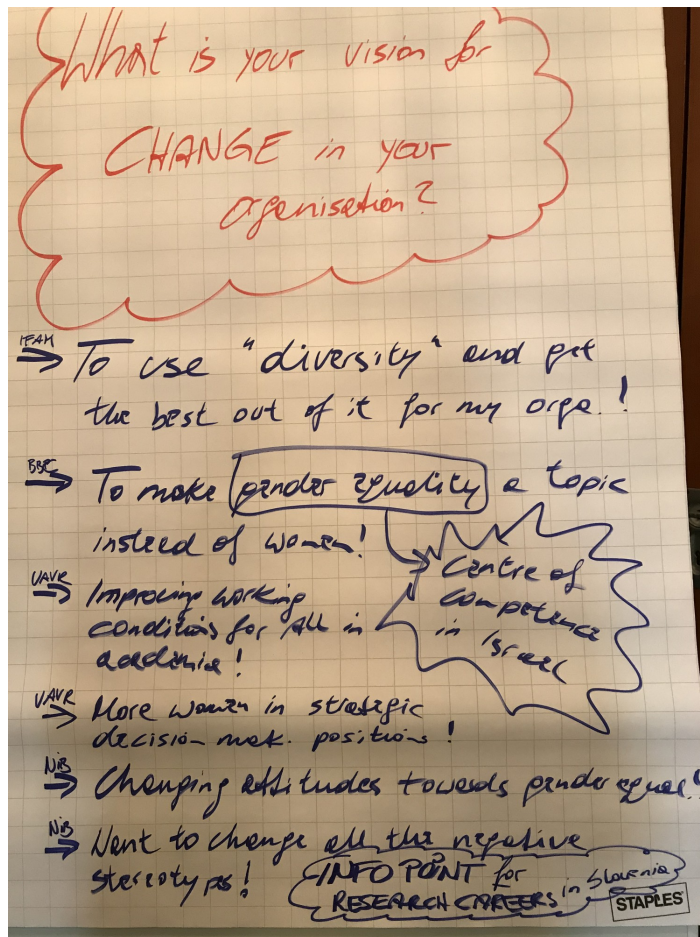 What is your vision for
CHANGE in your
organisation?
IFAM
To use "diversity" and get
the best out of it for my orga.!
BBC
To make gender equality a topic
instead of women!
Centre of
competence
in Israel
UAVR
Improving working
conditions for All in
academia!
UAVR
More women in strategic
decision mak. positions!
NiB
Changing attitudes towards gender equal.!
NiB
Want to change all the negative
stereotyps!
INFO POINT for
RESEARCH CAREERS in Slovenia
STAPLES